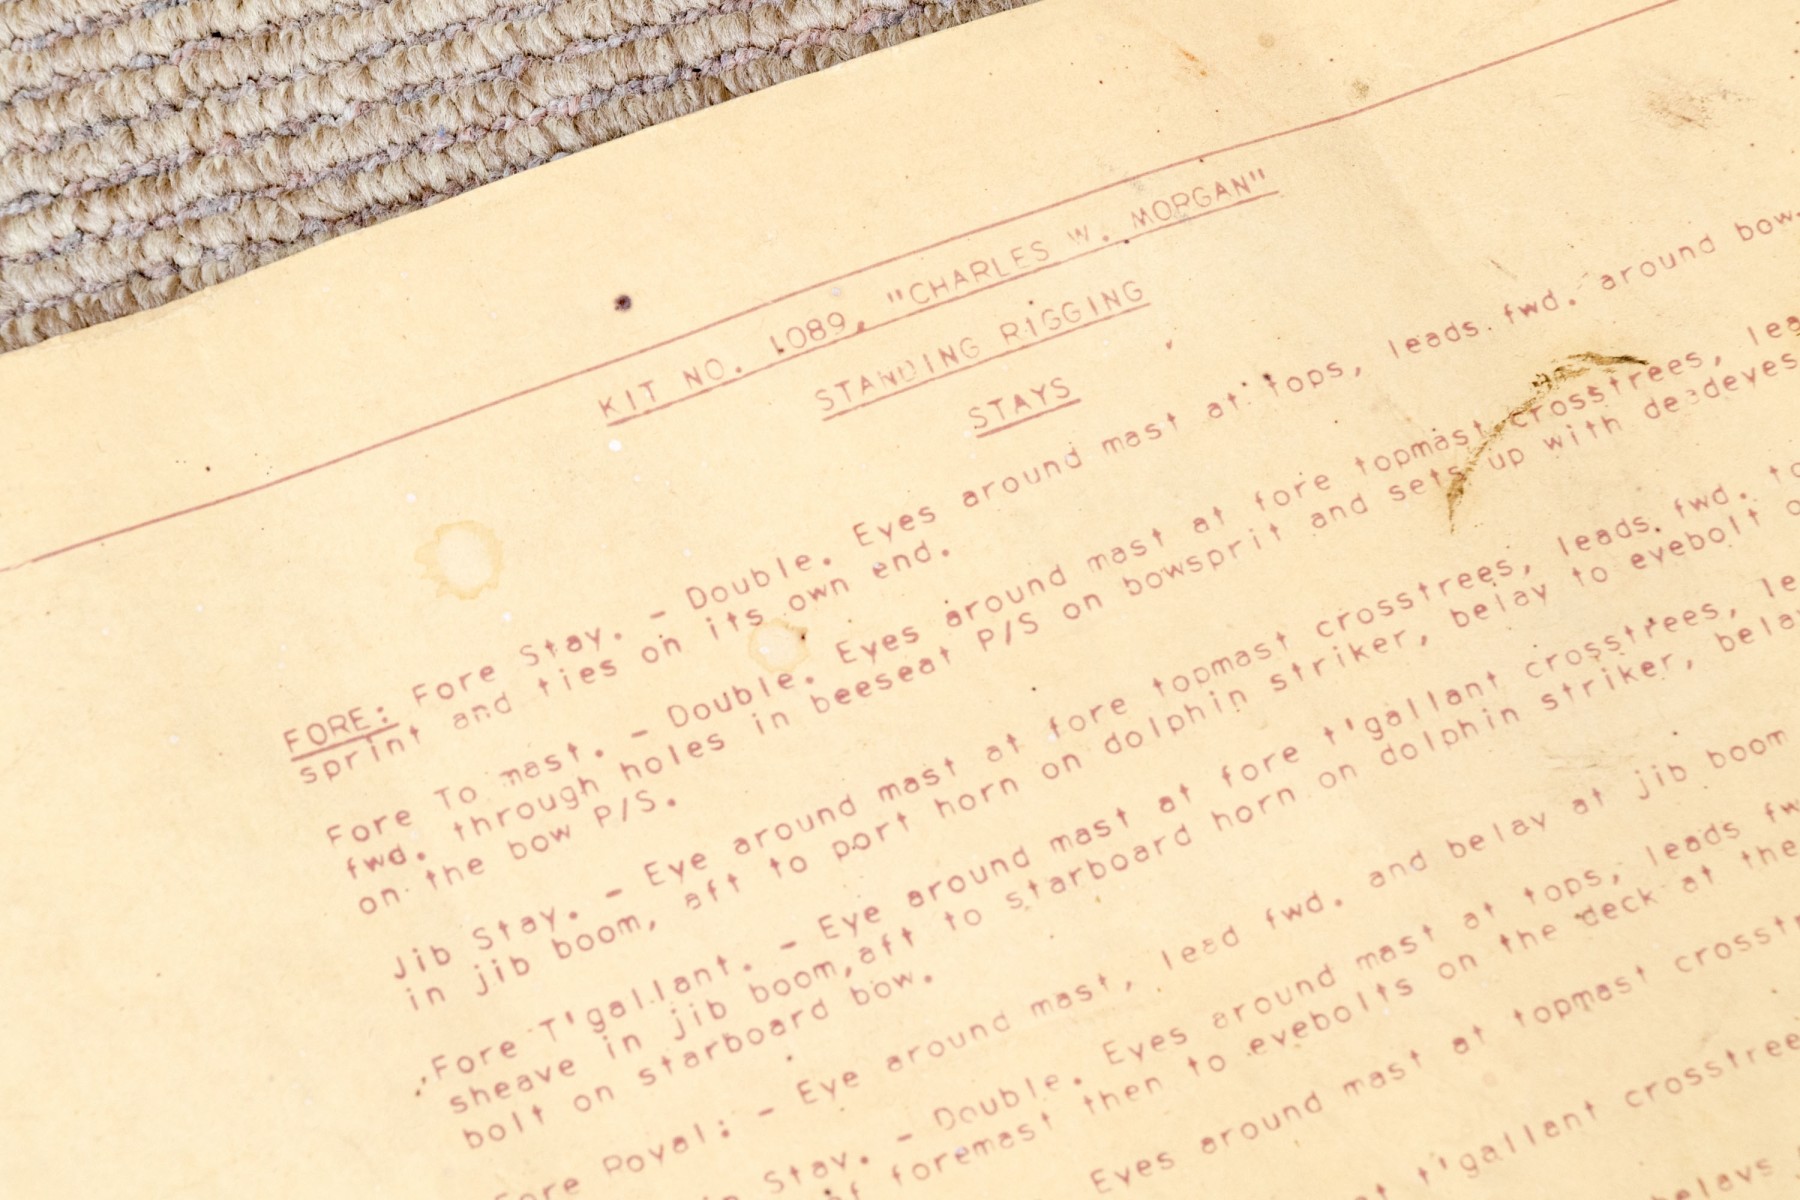 KIT NO. 1089, "CHARLES W. MORGAN"
STANDING RIGGING
STAYS
FORE: Fore Stay. - Double. Eyes around mast at tops, leads fwd. around bow
sprint and ties on its own end.
Fore To mast. - Double. Eyes around mast at fore topmast crosstrees,
fwd. through holes in beeseat P/S on bowsprit and sets up with deadeyes
on the bow P/S.
Jib Stay. - Eye around mast at fore topmast crosstrees, leads fwd.
in jib boom, aft to port horn on dolphin striker, belay to eyebolt
Fore T'gallant. - Eye around mast at fore t'gallant crosstrees,
sheave in jib boom, aft to starboard horn on dolphin striker,
bolt on starboard bow.
Fore Royal: - Eye around mast, lead fwd. and belay at jib boom
Stay. - Double. Eyes around mast at tops, leads
foremast then to eyebolts on the deck at the
Eyes around mast at topmast
t'gallant